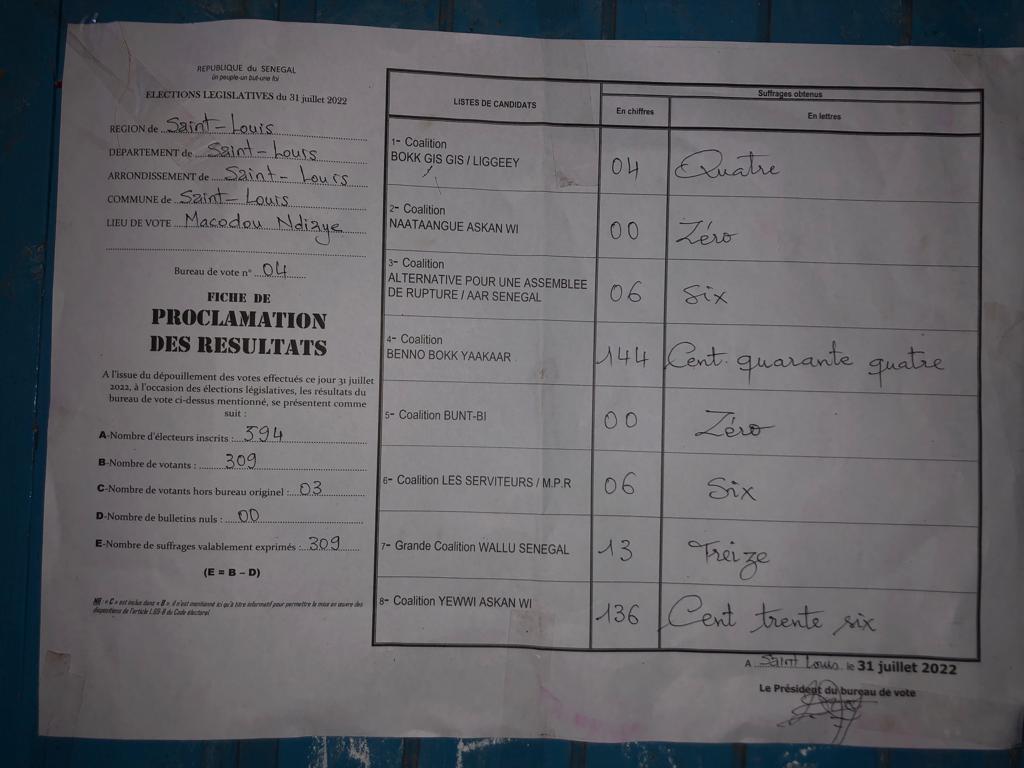 REPUBLIQUE du SENEGAL
Un peuple-un but-une foi
ELECTIONS LEGISLATIVES du 31 juillet 2022
REGION de Saint-Louis
DEPARTEMENT de Saint-Louis
ARRONDISSEMENT de Saint-Louis
COMMUNE de Saint-Louis
LIEU DE VOTE Macodou Ndiaye
Bureau de vote n° 04
FICHE DE
PROCLAMATION
DES RESULTATS
A l'issue du dépouillement des votes effectués ce jour 31 juillet
2022, à l'occasion des élections législatives, les résultats du
bureau de vote ci-dessus mentionné, se présentent comme
suit :
A-Nombre d'électeurs inscrits : 594
B-Nombre de votants : 309
C-Nombre de votants hors bureau originel : 03
D-Nombre de bulletins nuls : 00
E-Nombre de suffrages valablement exprimés : 309
(E = B – D)
NB : « C » est inclus dans « B », il n'est mentionné ici qu'à titre informatif pour permettre la mise en œuvre des
dispositions de l'article L.69-8 du Code électoral
LISTES DE CANDIDATS
Suffrages obtenus
En chiffres
En lettres
1- Coalition
BOKK GIS GIS / LIGGEEY
04
Quatre
2- Coalition
NAATAANGUE ASKAN WI
00
Zéro
3- Coalition
ALTERNATIVE POUR UNE ASSEMBLEE
DE RUPTURE / AAR SENEGAL
06
Six
4- Coalition
BENNO BOKK YAAKAAR
144
Cent quarante quatre
5- Coalition BUNT-BI
00
Zéro
6- Coalition LES SERVITEURS / M.P.R
06
Six
7- Grande Coalition WALLU SENEGAL
13
Treize
8- Coalition YEWWI ASKAN WI
136
Cent trente six
A Saint Louis le 31 juillet 2022
Le Président du bureau de vote